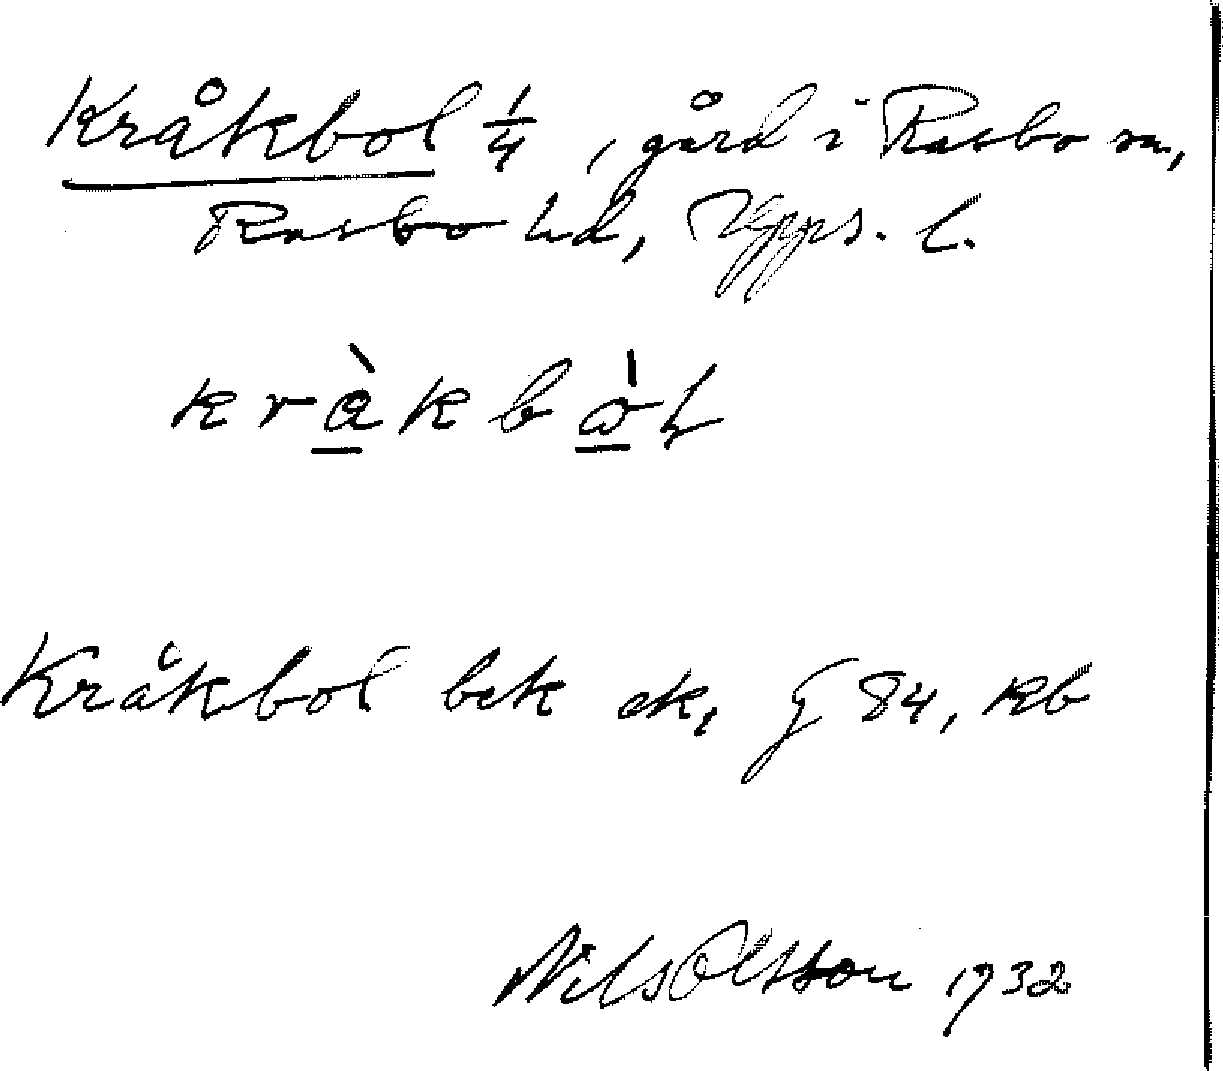 Kråkbol 1/4, gård i Rasbo sn,
Rasbo hd, Upps. l.
kràkbòɫ
Kråkbol bek ek, G 84, Rb
Nils Olsson 1932